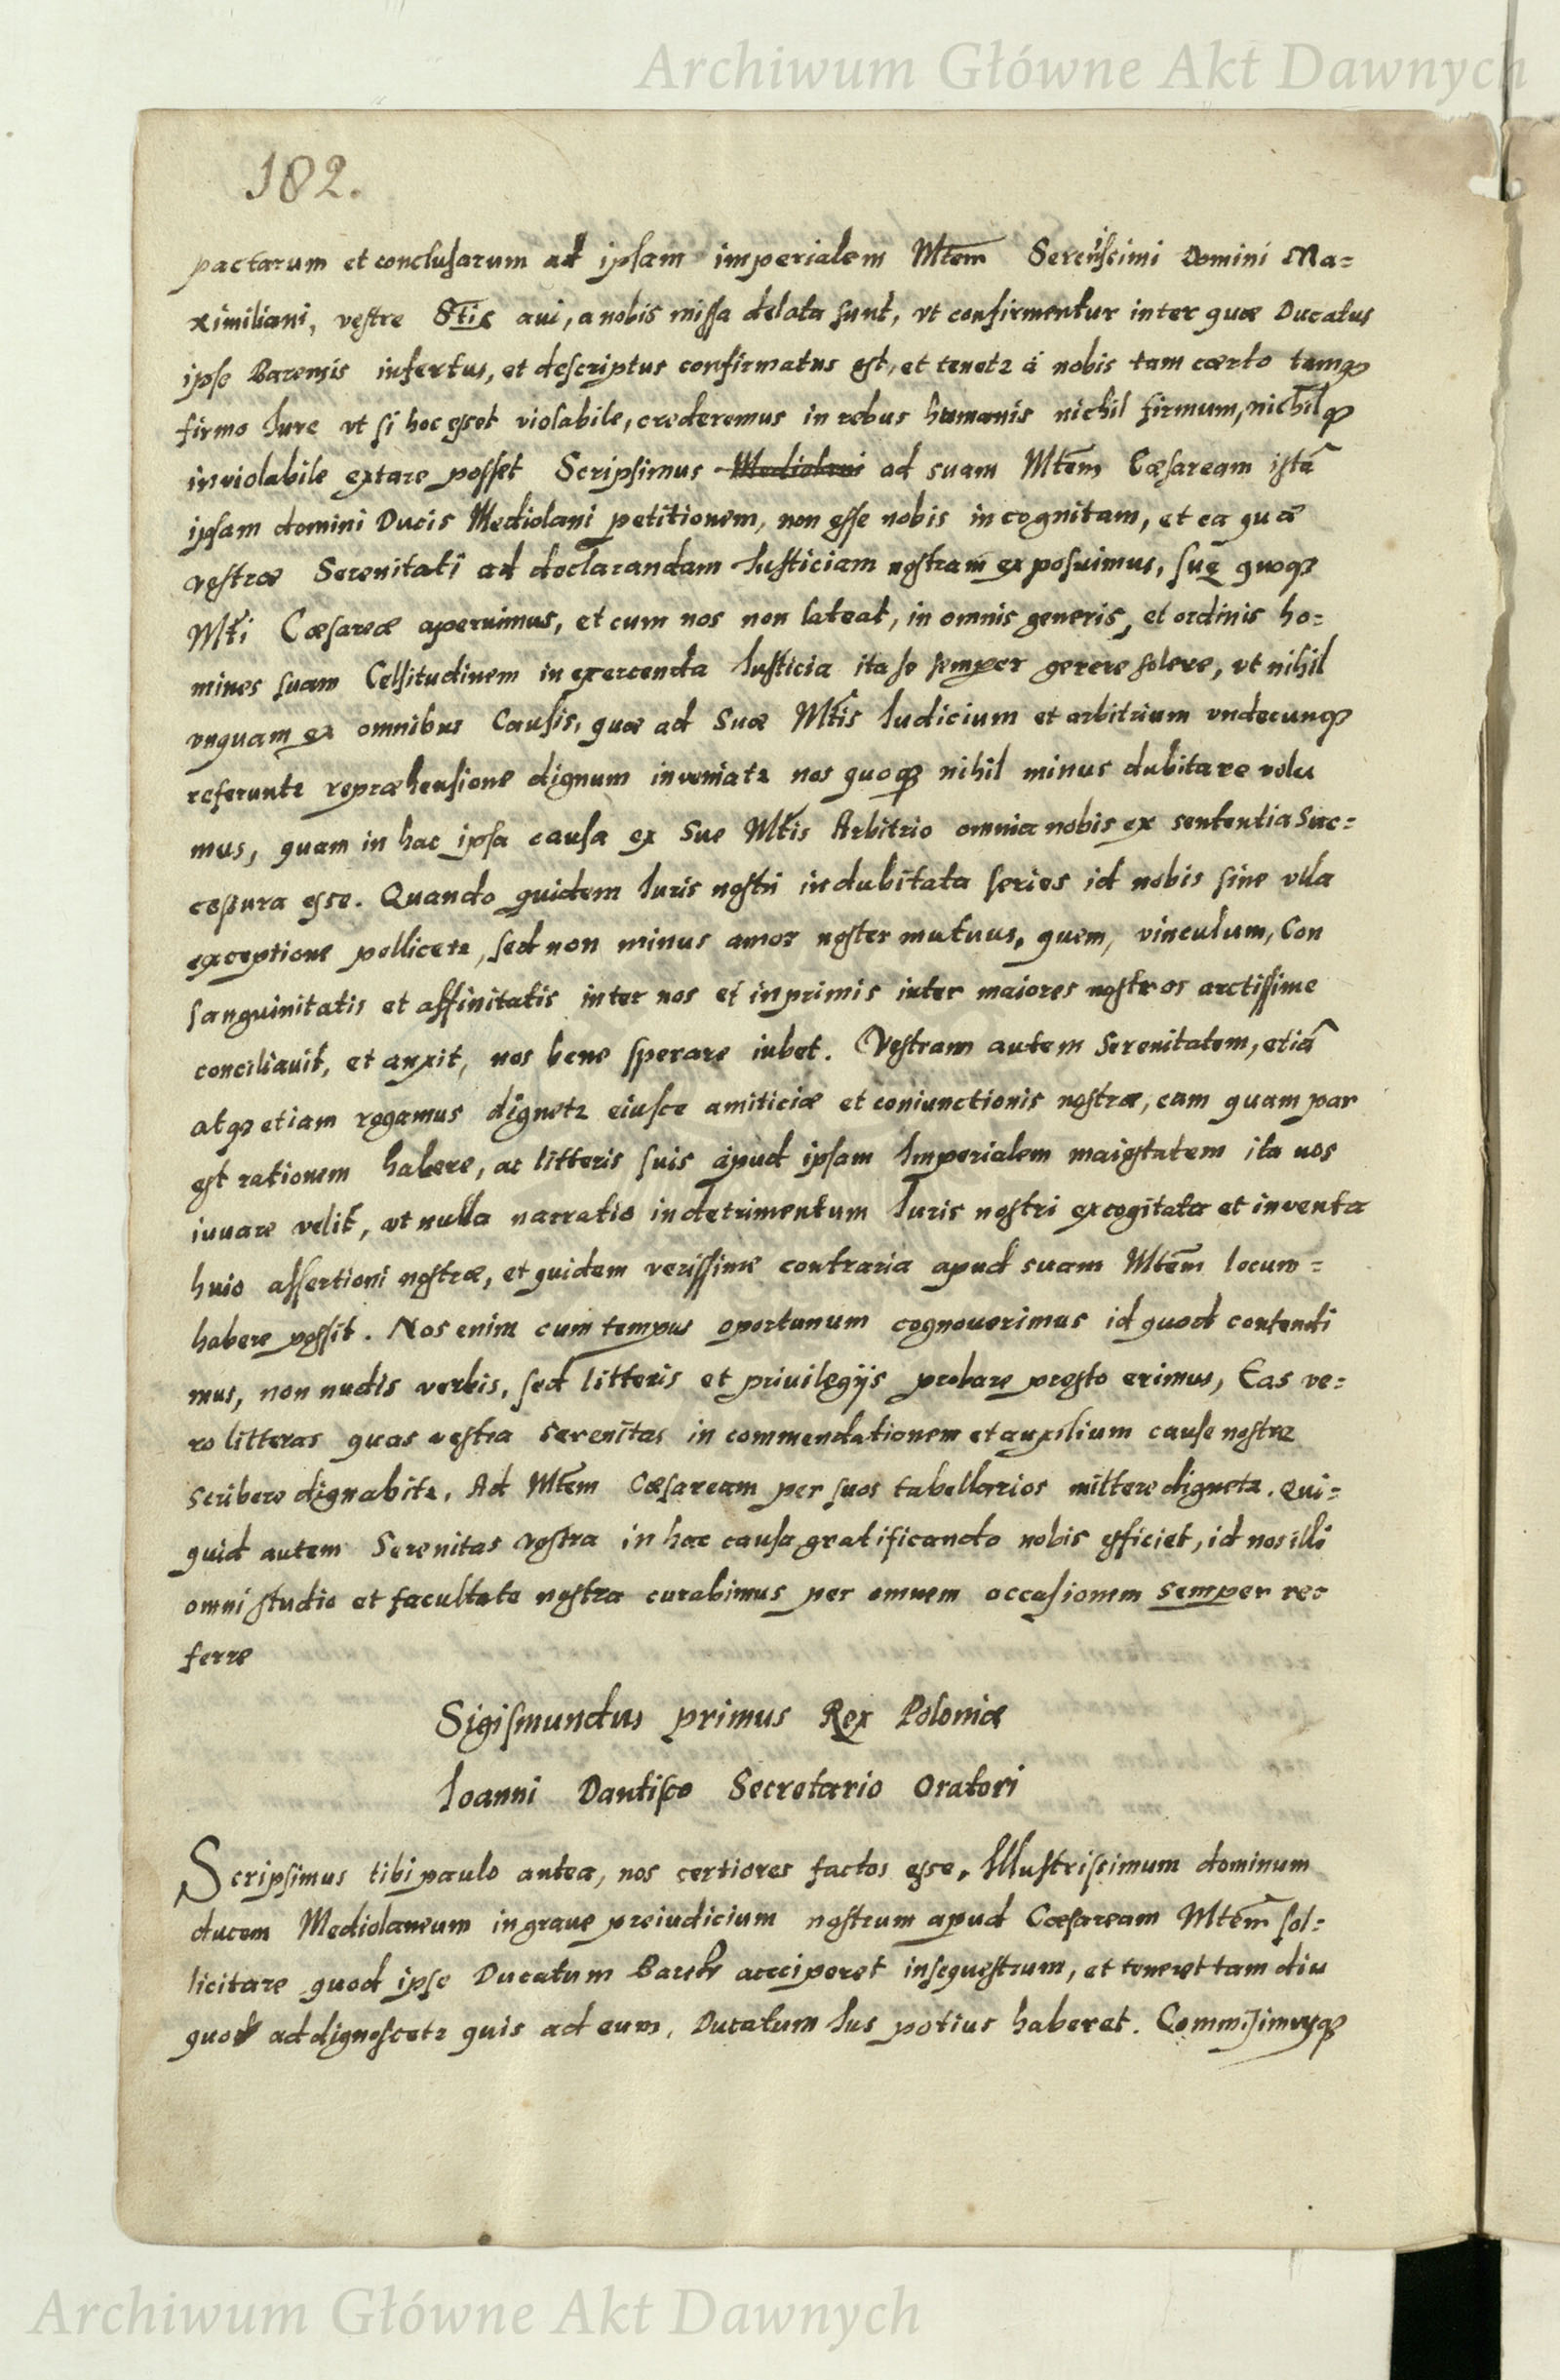 Archiwum Główne Akt Dawnych
182.
pactarum et conclusarum ad ipsam imperialem Mtem Serenissimi Domini Ma=
ximiliani, vestre Stis aui, a nobis missa delata sunt, vt confirmentur inter quæ Ducatus
ipse Barensis insertus, et descriptus confirmatus est, et tenetr á nobis tam cærto tamqȝ
firmo Iure vt si hoc esset violabile, crederemus in rebus humanis nichil firmum, nichilqȝ
inviolabile extare posset Scripsimus Mediolani ad suam Mtem Cæsaream istã
ipsam domini Ducis Mediolani petitionem, non esse nobis incognitam, et ea quæ
vestræ Serenitati ad declarandam Iusticiam nostram exposuimus, suę quoqȝ
Mti Cæsareæ aperuimus, et cum nos non lateat, in omnis generis, et ordinis ho=
mines suam Celsitudinem in exercenda Iusticia ita se semper gerere solere, vt nihil
vnquam ex omnibus Causis, quæ ad Suæ Mtis Iudicium et arbitrium vndecunqȝ
referuntr repræhensione dignum inveniatr nos quoqȝ nihil minus dubitare volu
mus, quam in hac ipsa causa ex Sue Mtis Arbitrio omnia nobis ex sententia Suc=
cessura esse. Quando quidem Iuris nostri indubitata series id nobis sine vlla
exceptione pollicetr, sed non minus amor noster mutuus, quem, vinculum, Con
sanguinitatis et affinitatis inter nos et inprimis inter maiores nostros arctissime
conciliauit, et auxit, nos bene sperare iubet. Vestram autem Serenitatem, etiã
atqȝ etiam rogamus dignetr eiusce amiticiæ et coniunctionis nostræ, eam quam par
est rationem habere, ac litteris suis apud ipsam Imperialem maiestatem ita nos
iuuare velit, vt nulla narratio in detrimentum Iuris nostri excogitata et inventa
huic assertioni nostræ, et quidem verissime contraria apud suam Mtem locum=
habere possit. Nos enim cum tempus oportunum cognouerimus id quod contendi
mus, non nudis verbis, sed litteris et priuilegijs probare presto erimus, Eas ve=
ro litteras quas vestra Serenitas in commendationem et auxilium cause nostre
scribere dignabitr, Ad Mtem Cæsaream per suos tabellarios mittere dignetr. Qui=
quid autem Serenitas vestra in hac causa gratificando nobis efficiet, id nos illi
omni studio et facultate nostra curabimus per omnem occasionem semper re
ferre
Sigismundus primus Rex Poloniæ
Ioanni Dantisco Secretario Oratori
Scripsimus tibi paulo antea, nos certiores factos esse, Illustrissimum dominum
ducem Mediolaneum in graue preiudicium nostrum apud Cæsaream Mtem sol=
licitare quod ipse Ducatum acciperet in sequestrum, et teneret tam diu
quod ad dignoscetr quis ad eum, Ducatum Ius potius haberet. Commisimusqȝ
Archiwum Główne Akt Dawnych